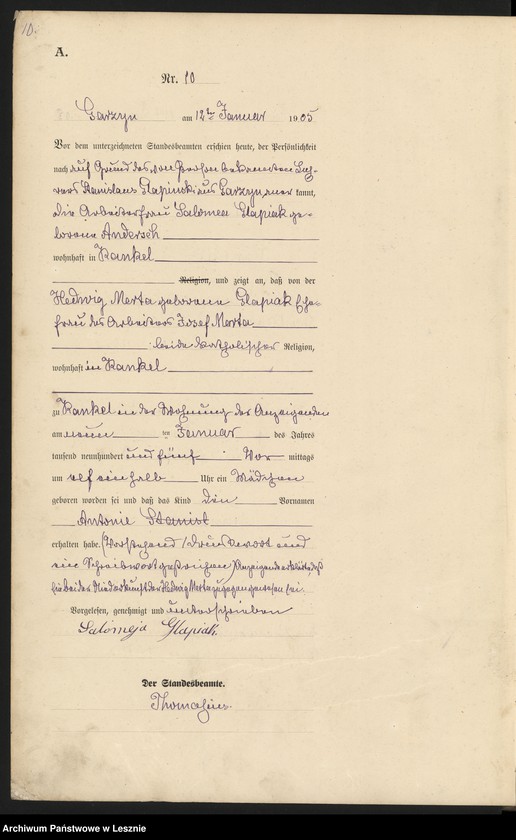 10.
A.
Nr. 10
Garzyn am 12ten Januar 1905
Vor dem unterzeichneten Standesbeamten erschien heute, der Persönlichkeit
nach auf Grund des von Person bekannten Leh-
rers Stanislaus Slapinski aus Garzyn aner kannt,
die Arbeiterfrau Salomea Glapiak ge-
borene Andersch
wohnhaft in Kankel
Religion, und zeigt an, daß von der
Hedwig Merta geborene Glapiak Ehe-
frau des Arbeiters Josef Merta
beide katholischer Religion,
wohnhaft in Kankel
zu Kankel in der Wohnung der Anzeigenden
am neun ten Januar des Jahres
tausend neunhundert und fünf Vor mittags
um elf einhalb Uhr ein Mädchen
geboren worden sei und daß das Kind den Vornamen
Antonie
erhalten habe. (Vorstehend 1 Druckwort und
ein Schreibwort gestrichen) Anzeigende erklärte, daß
sie bei der Niederkunft der Hedwig Merta zugegen gewesen sei.
Vorgelesen, genehmigt und unterschrieben
Salomeja Glapiak
Der Standesbeamte.
Archiwum Państwowe w Lesznie